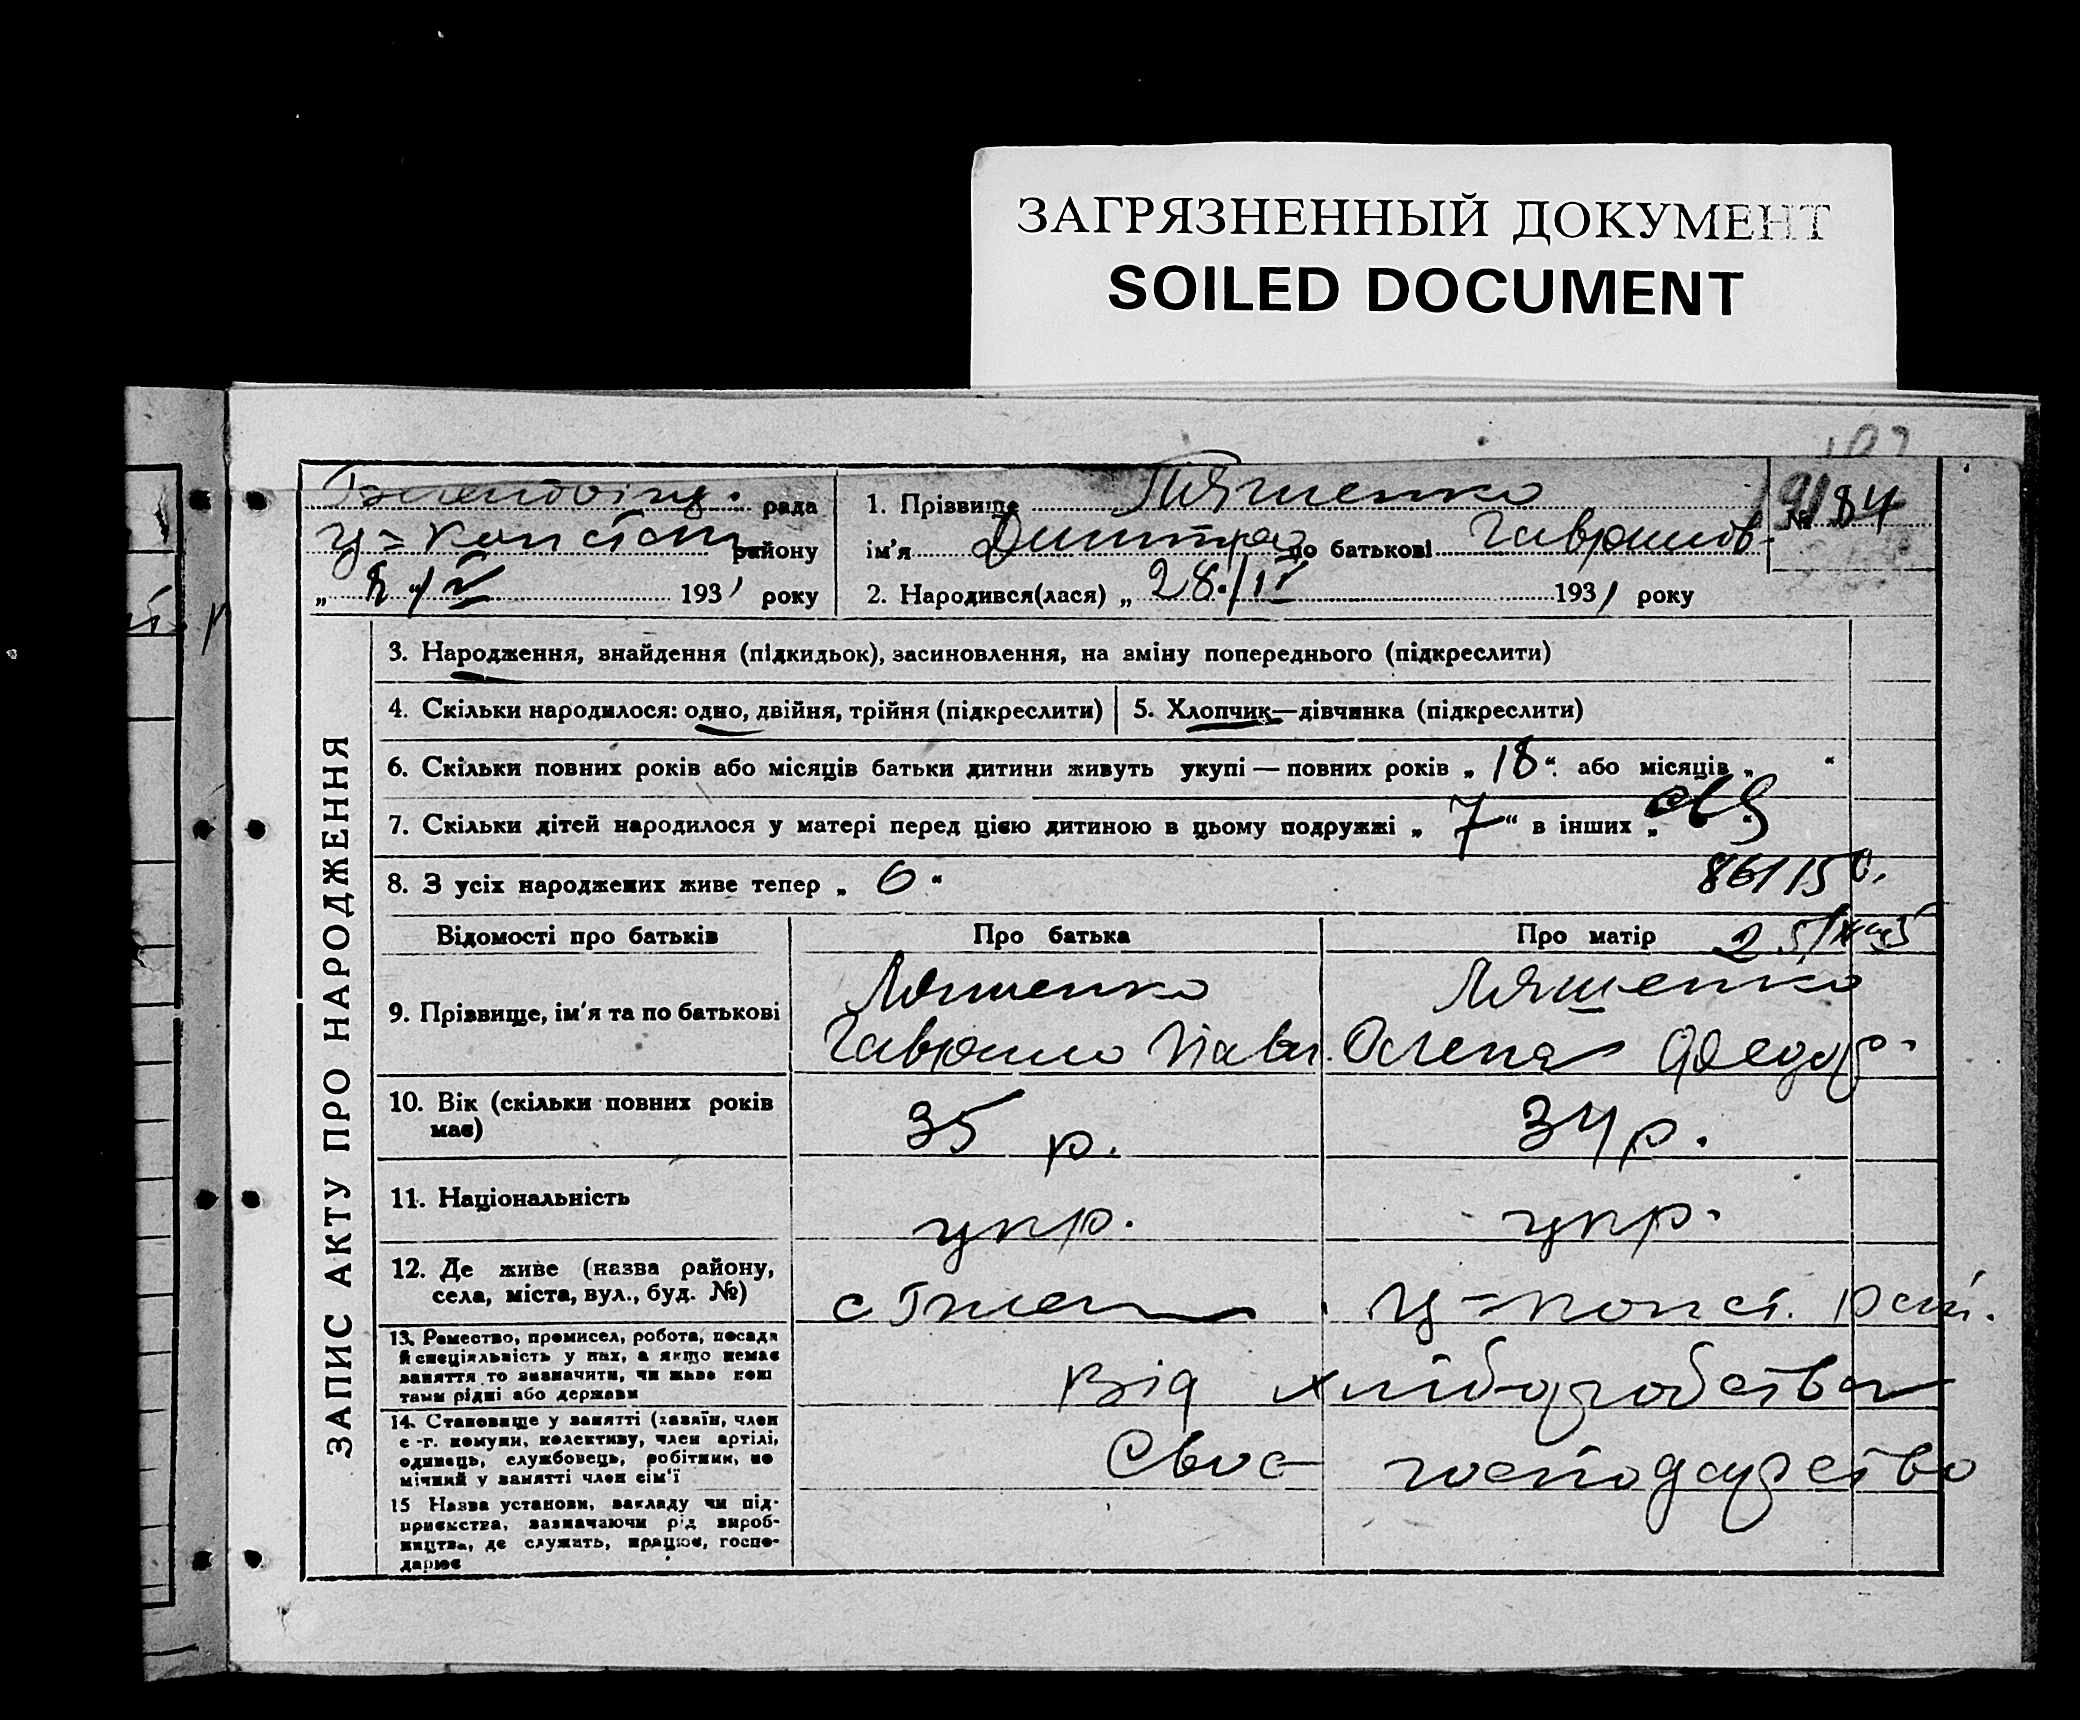 ЗАГРЯЗНЕННЫЙ ДОКУМЕНТ
SOILED DOCUMENT
рада
району
1931 року
1. Прізвище Ляшенко
ім'я Дмитро по батькові Гаврилов.
2. Народився(лася) „28./IV 1931 року
№ 84
ЗАПИС АКТУ ПРО НАРОДЖЕННЯ
3. Народження, знайдення (підкидьок), засиновлення, на зміну попереднього (підкреслити)
4. Скільки народилося: одно, двійня, трійня (підкреслити)
5. Хлопчик—дівчинка (підкреслити)
6. Скільки повних років або місяців батьки дитини живуть укупі — повних років „18“. або місяців „ “
7. Скільки дітей народилося у матері перед цією дитиною в цьому подружжі „7“ в інших „ “
8. З усіх народжених живе тепер „6“
Відомості про батьків
Про батька
Про матір
9. Прізвище, ім'я та по батькові
Ляшенко
Гаврило Павл.
Ляшенко
Олена Федор.
10. Вік (скільки повних років
має)
35 р.
34 р.
11. Національність
укр.
укр.
12. Де живе (назва району,
села, міста, вул., буд. №)
13. Ремество, промисел, робота, посада
й спеціяльність у них, а якщо немає
заняття то визначити, чи живе кош
тами рідні або держави
Від хліборобства
14. Становище у занятті (хазяїн, член
с.-г. комуни, колективу, член артілі,
одинець, службовець, робітник, по
мічний у занятті член сім'ї
Своє господарство
15 Назва установи, закладу чи під-
приємства, зазначаючи рід вироб-
ництва, де служить, працює, госпо-
дарює